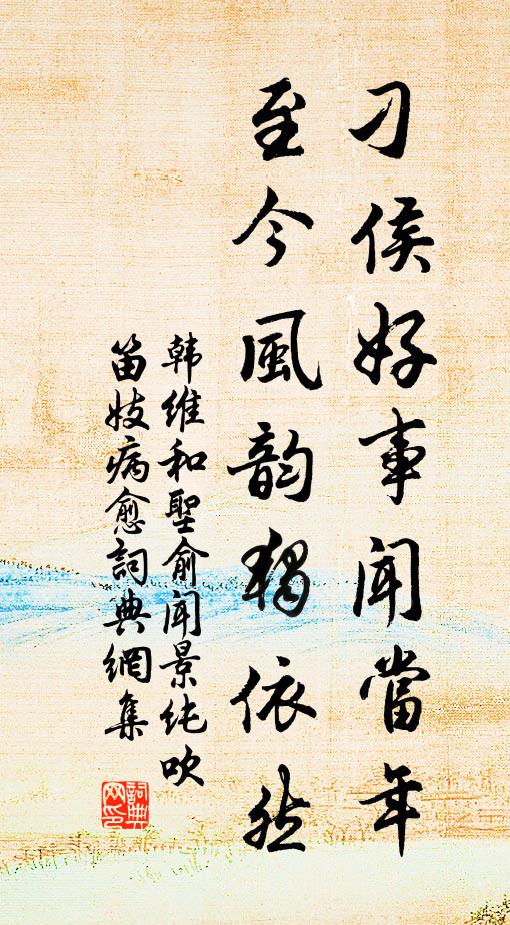 刁侯好事闻當年
至今風韵獨依然
韩維和聖俞闻景纯吹
笛妓病愈詞典網集
詞典
网印